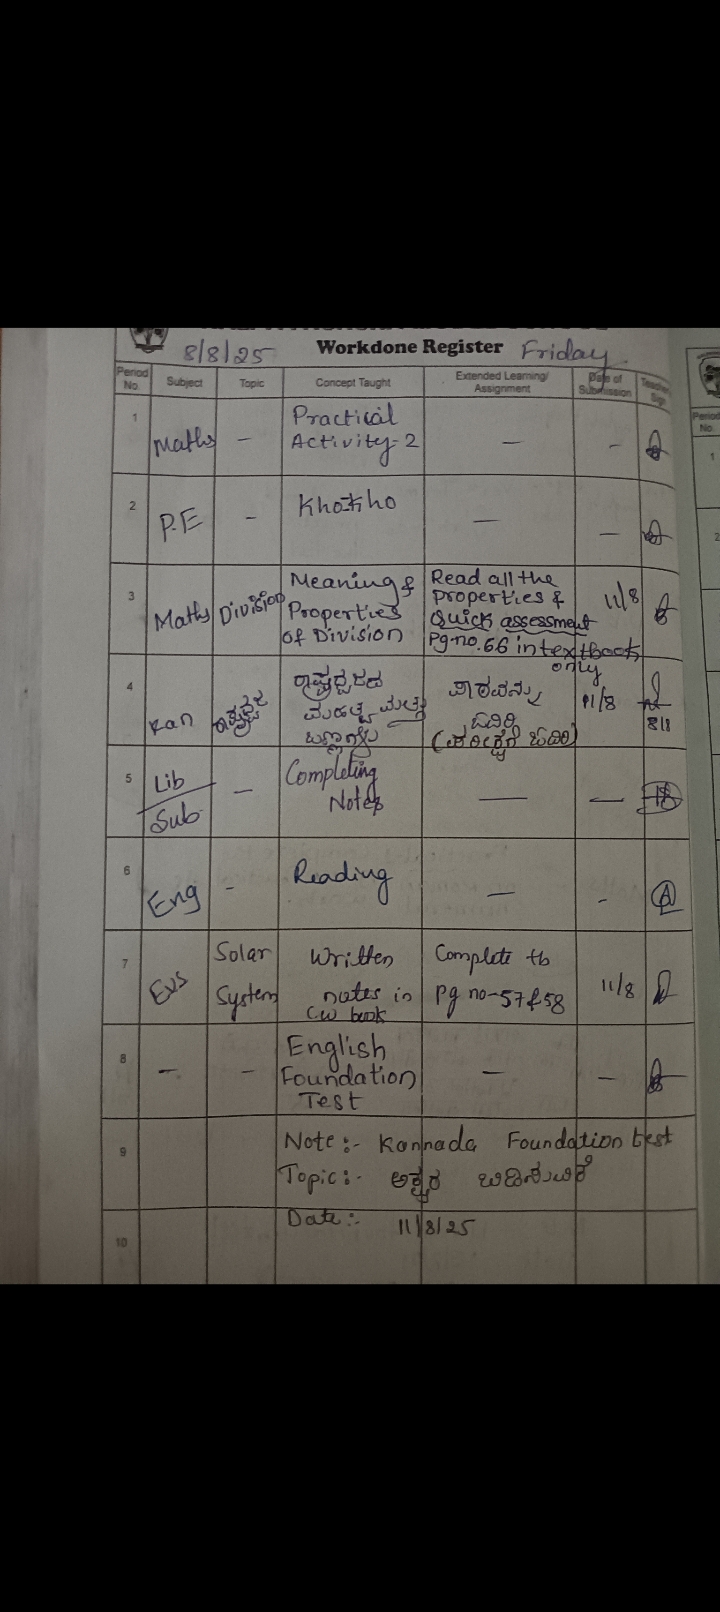 8/8/25 Workdone Register Friday
Period No. Subject Topic Concept Taught Extended Learning/ Assignment Date of Submission Teacher Sign
1 Maths - Practical Activity-2 - -
2 P.E - Khokho - -
3 Maths Division Meaning & Properties of Division Read all the Properties & Quick assessment Pg.no.66 in textbook only 11/8
4 Kan ರಾಷ್ಟ್ರಧ್ವಜ ರಾಷ್ಟ್ರಧ್ವಜದ ಮಹತ್ವ ಮತ್ತು ಬಣ್ಣಗಳು ಪಾಠವನ್ನು ಓದಿರಿ 11/8
8/8
5 Lib/Sub - Completing Notes - -
6 Eng - Reading - -
7 EVS Solar System Written notes in CW book Complete tb Pg no-57&58 11/8
8 - - English Foundation Test - -
9 Note:- Kannada Foundation test
Topic:- ಅಕ್ಷರ ಬಿಡಿಸುವಿಕೆ
Date:- 11/8/25
10
Period No.
1
2